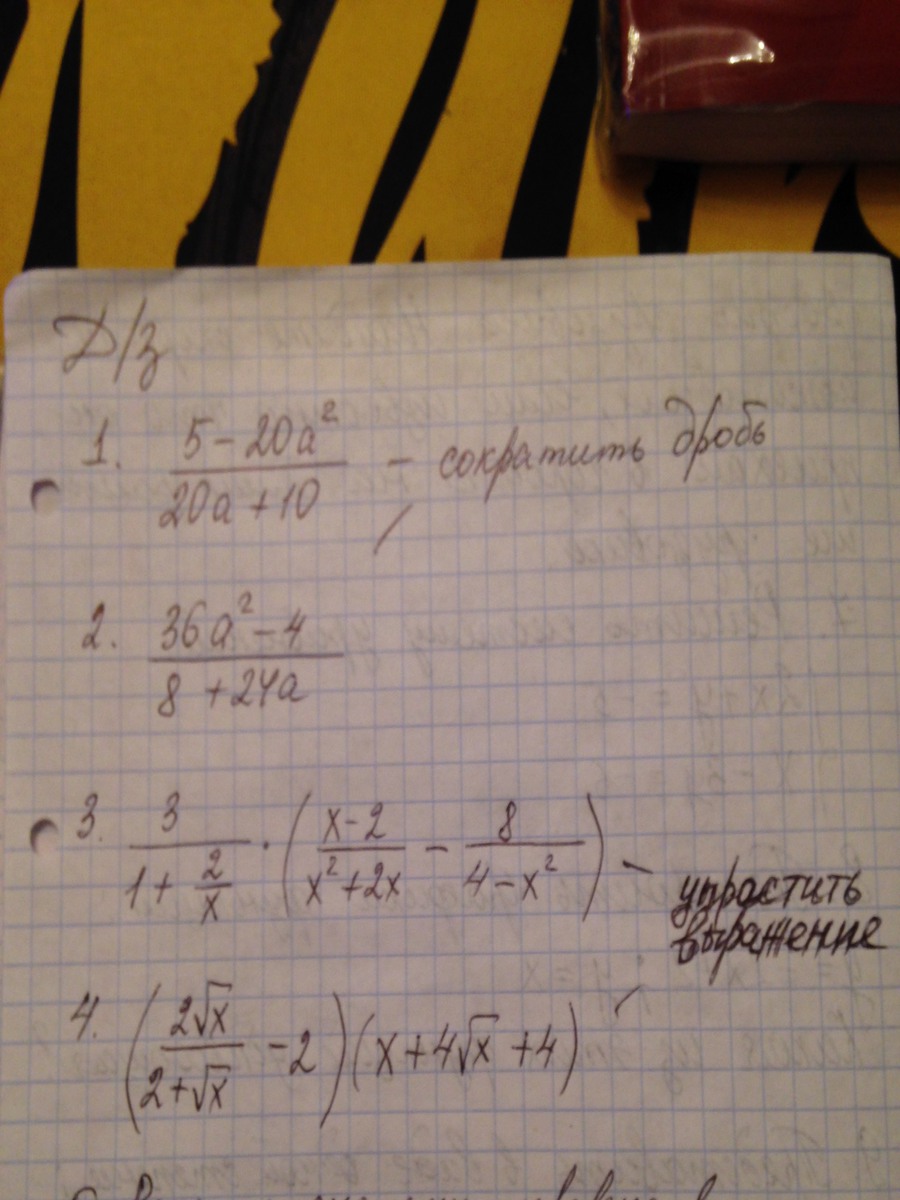 Д/з
1. (5 - 20a²)/(20a + 10) - сократить дробь
2. (36a² - 4)/(8 + 24a)
3. 3/(1 + 2/x) · ((x - 2)/(x² + 2x) - 8/(4 - x²)) - упростить
выражение
4. (2√x/(2 + √x) - 2)(x + 4√x + 4)